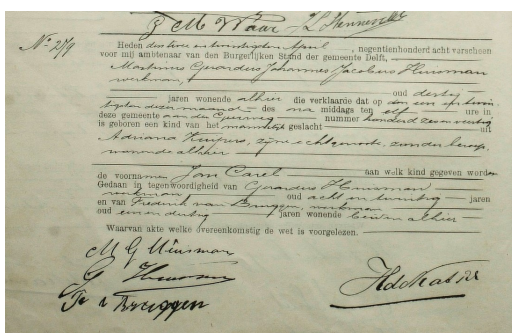 P. M. Waar
No 279
Heden drie en twintigsten April, negentienhonderd acht verscheen
voor mij ambtenaar van den Burgerlijken Stand der gemeente Delft,
Martinus Gerardus Johannes Jacobus Huisman
werkman, oud dertig
jaren wonende alhier die verklaarde dat op den een en twin-
tigsten dezer maand des na middags ten elf ure in
deze gemeente aan den nummer honderd zes en veertig
is geboren een kind van het mannelijk geslacht uit
Adriana Kuipers, zijne echtgenoote, zonder beroep,
wonende alhier
de voornamen Jan Carel aan welk kind gegeven worden
Gedaan in tegenwoordigheid van Gerardus Huisman
werkman oud acht en twintig jaren
en van Frederik van Bruggen, werkman
oud een en dertig jaren wonende beiden alhier
Waarvan akte welke overeenkomstig de wet is voorgelezen.
M G Huisman
G Huisman
F v Bruggen